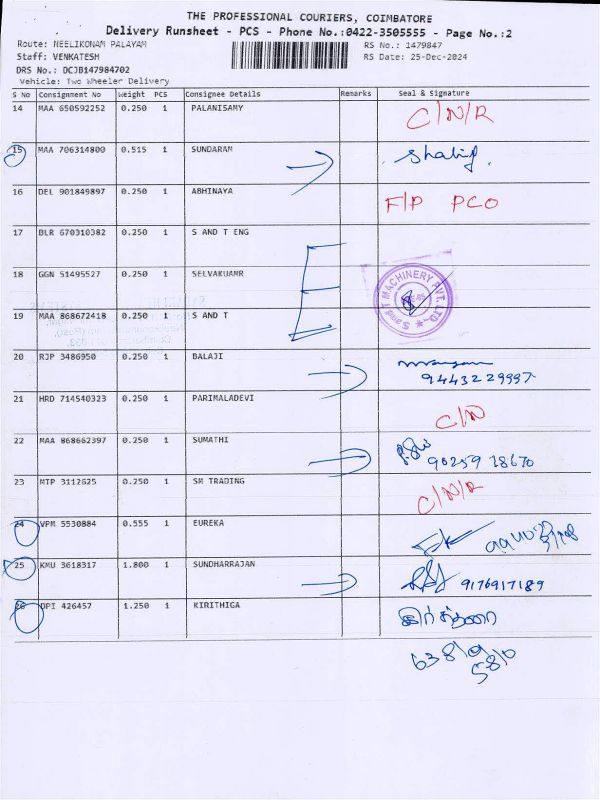 THE PROFESSIONAL COURIERS, COIMBATORE
Delivery Runsheet - PCS - Phone No.:0422-3505555 - Page No.:2
Route: NEELIKONAM PALAYAM RS No.: 1479847
Staff: VENKATESH RS Date: 25-Dec-2024
DRS No.: DCJB147984702
Vehicle: Two Wheeler Delivery
S No Consignment No Weight PCS Consignee Details Remarks Seal & Signature
14 MAA 650592252 0.250 1 PALANISAMY C/N/R
15 MAA 706314800 0.515 1 SUNDARAM
16 DEL 901849897 0.250 1 ABHINAYA F/P PCO
17 BLR 670310382 0.250 1 S AND T ENG
18 GGN 51495527 0.250 1 SELVAKUAMR
S and T MACHINERY PVT. LTD.
19 MAA 868672418 0.250 1 S AND T
20 RJP 3486950 0.250 1 BALAJI
9443229997
21 HRD 714540323 0.250 1 PARIMALADEVI C/N
22 MAA 868662397 0.250 1 SUMATHI
90259 18670
23 MTP 3112625 0.250 1 SM TRADING C/N/R
24 VPM 5530884 0.555 1 EUREKA
25 KMU 3618317 1.800 1 SUNDHARRAJAN 9176917189
26 DPI 426457 1.250 1 KIRITHIGA